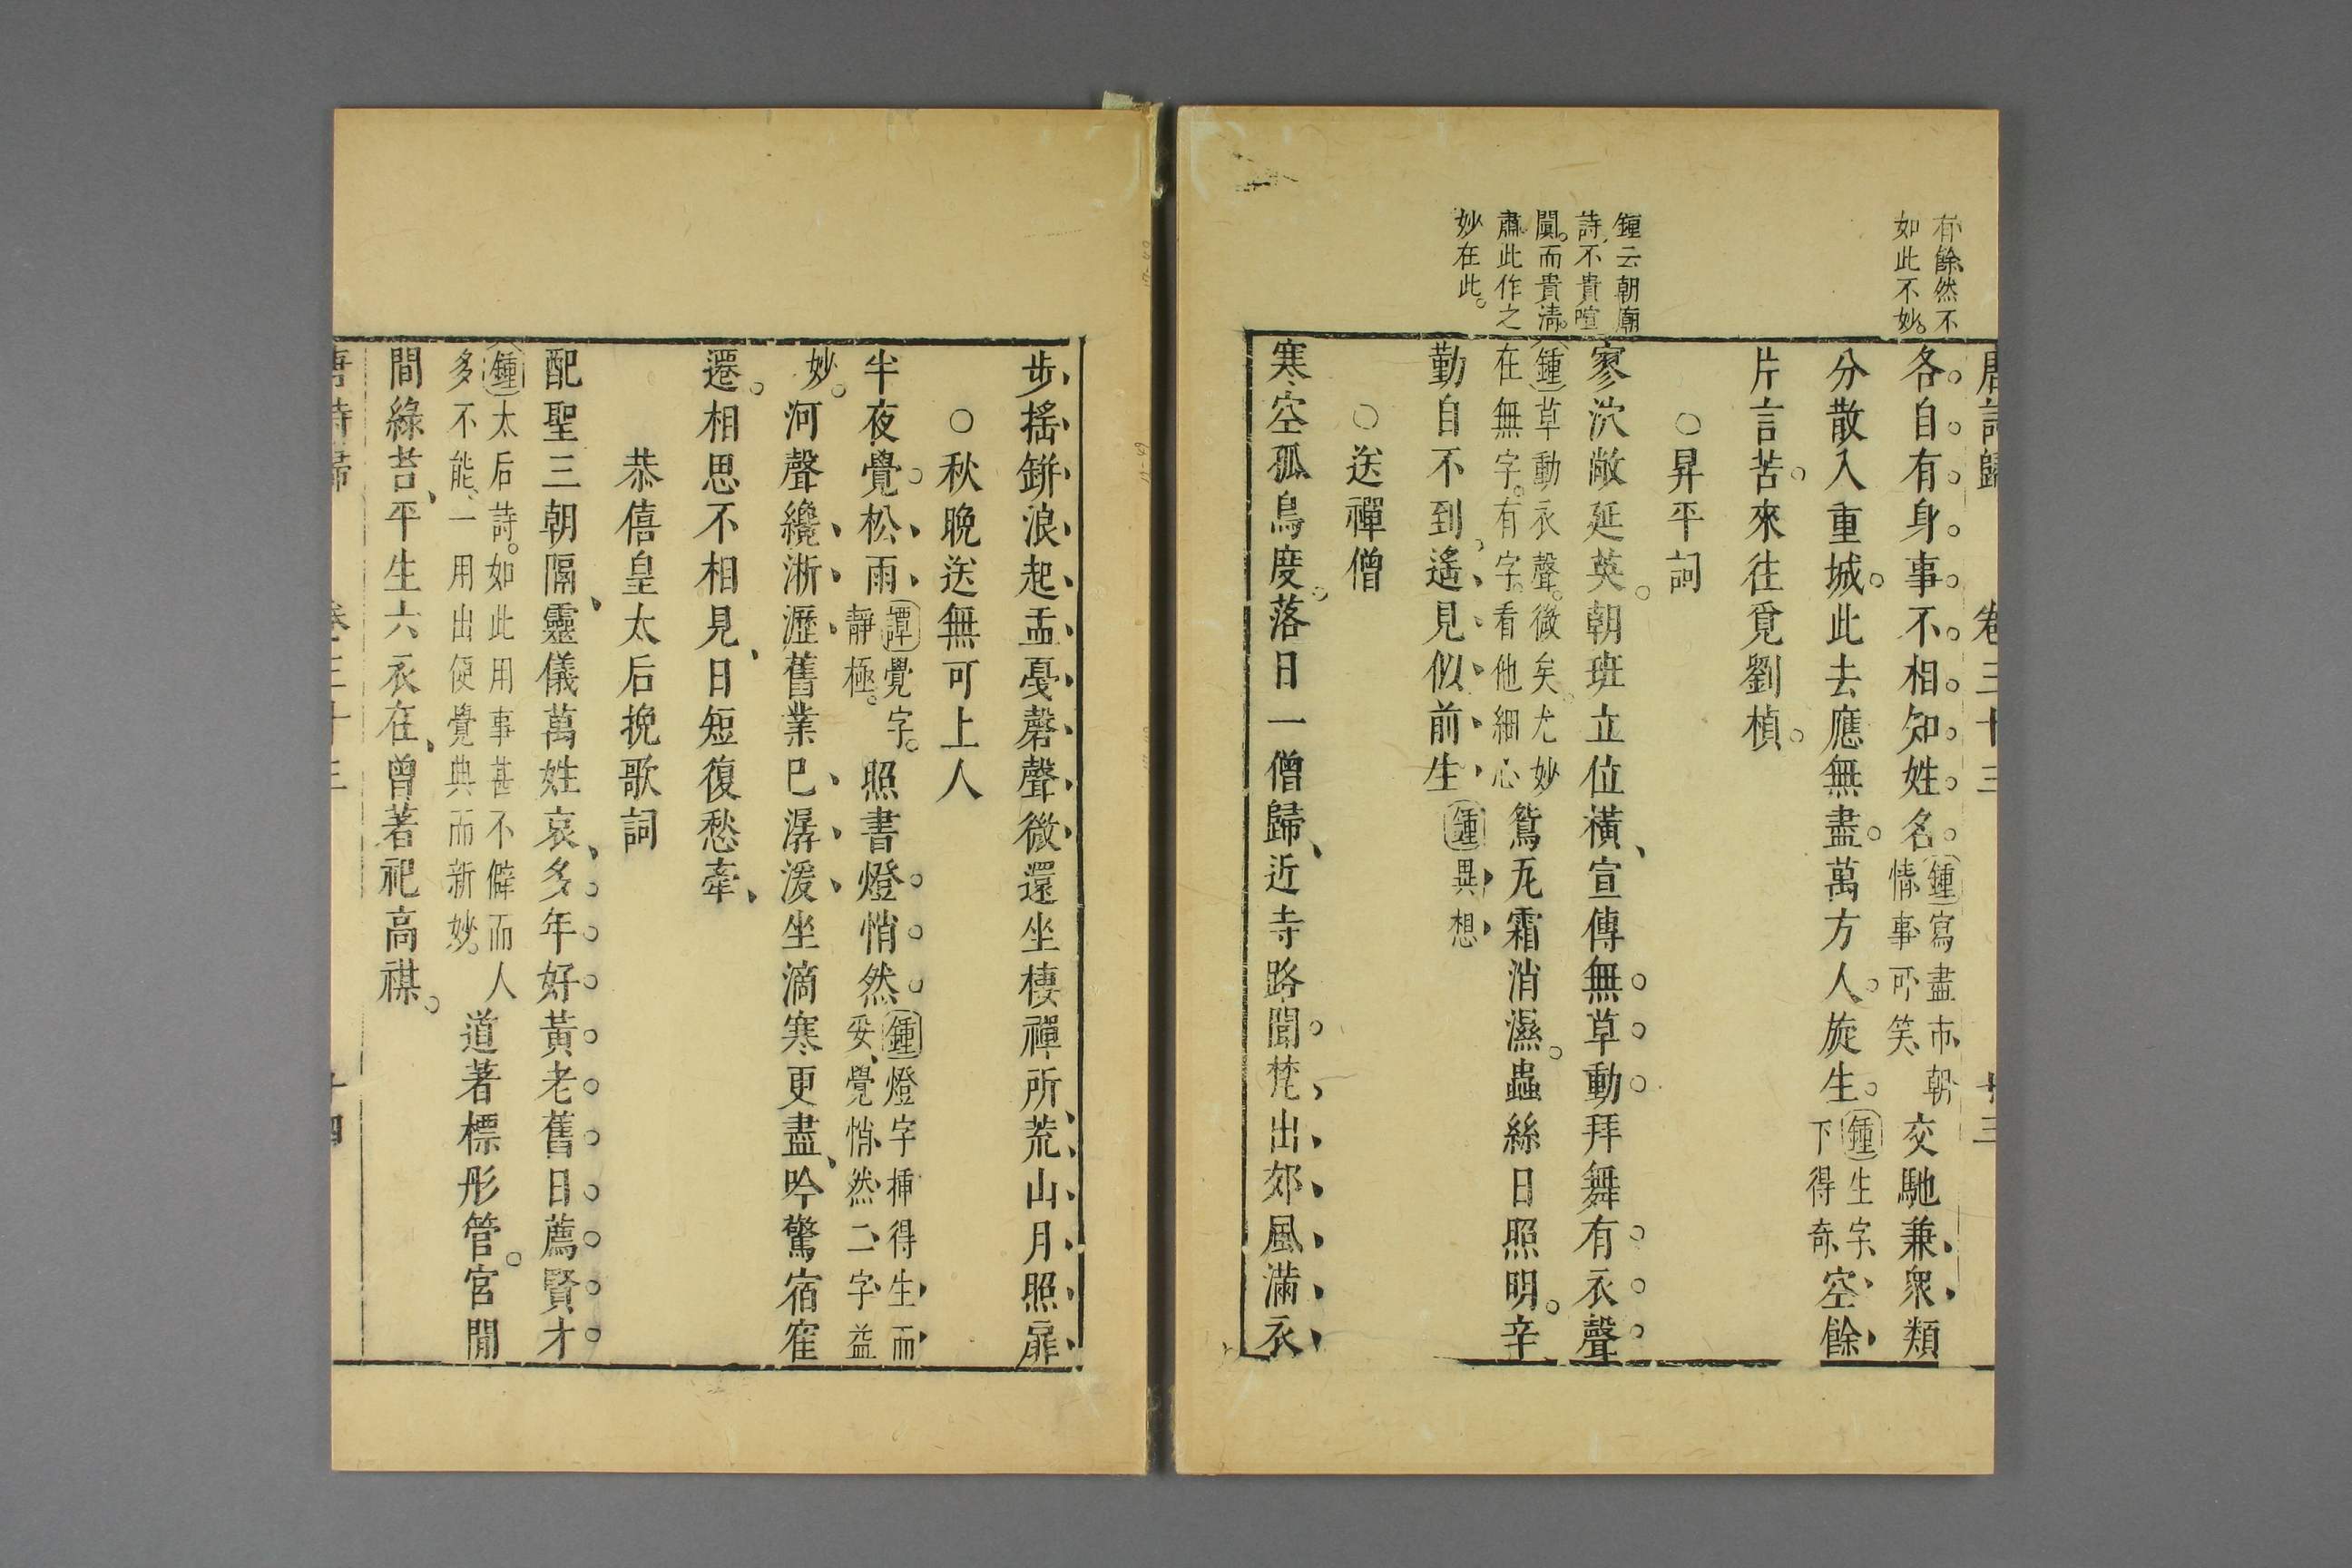 唐詩歸 卷三十三 廿三
有餘然不
如此不妙。
各。自。有。身。事。不。相。知。姓。名。鍾寫盡市朝情事可笑交馳兼衆類
分散入重城。此去應無盡。萬方人。旋生。鍾生字下得奇空餘
片言苦。來往覓劉楨。
○昇平詞
鍾云朝廟
詩不貴喧
闐。而貴清。
肅此作之
妙在此。
寥泬敞延英。朝班立位橫、宣傳無。草。動。拜舞有。衣。聲。
鍾草動衣聲。微矣。尤妙在無字。有字。看他細心鴛瓦霜消濕。蟲絲日照明。辛
勤自不到、遙見似前生鍾異想
○送禪僧
寒空孤鳥度。落日一僧歸、近寺路聞。梵出郊風滿衣
步搖缾浪起盂戞磬聲微還坐棲禪所、荒山月照扉
○秋晚送無可上人
半夜覺。松雨譚覺字。靜極。照書燈。悄。然。鍾燈字揷得生而妥、覺悄然二字益
妙。河聲纔淅瀝舊業已潺湲坐滴寒更盡、吟驚宿寉
遷。相思不相見、日短復愁牽、
恭僖皇太后挽歌詞
配聖三朝隔、靈儀萬姓哀、多。年。好。黃。老。舊。日。薦。賢。才。
鍾太后詩。如此用事甚不僻而人多不能、一用出便覺典而新妙。道著標彤管。宮閒
間綠苔、平生六衣在、曾著祀高禖。
唐詩歸 卷三十三 廿四